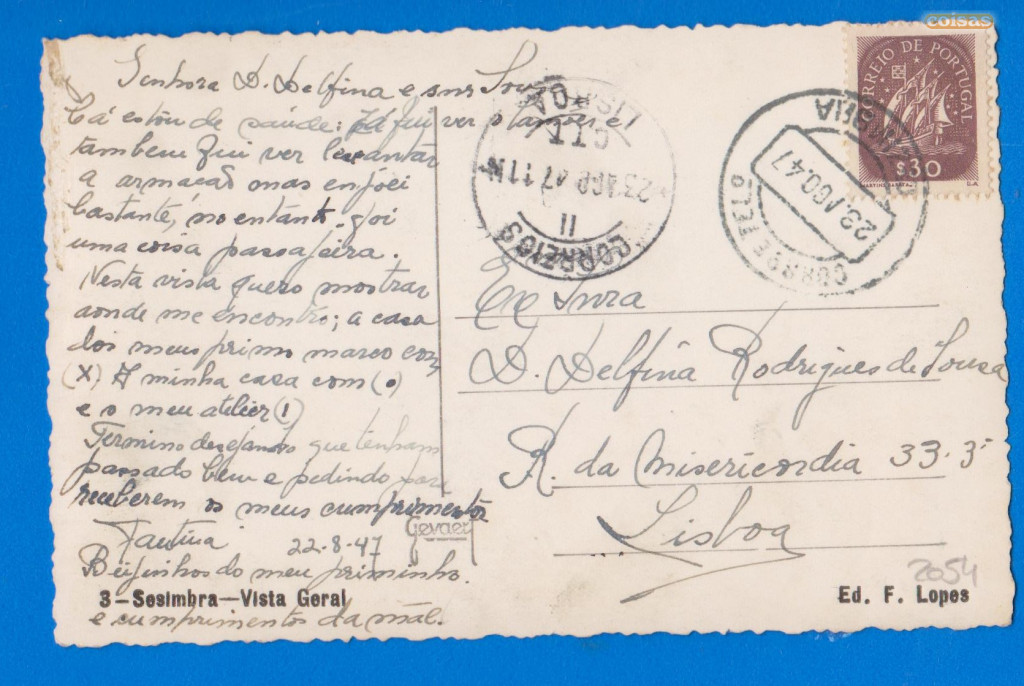 coisas
CORREIO DE PORTUGAL
$30
MARTINS BARATA
Senhora D. Delfina e snr Sousa
Cá estou de saúde; já fui ver o
tambem fui ver levantar
a armação mas enjoei
bastante, no entanto foi
uma coisa passajeira.
Nesta vista quero mostrar
aonde me encontro; a casa
dos meus primo marco com
(X) A minha casa com (o)
e o meu atelier (1)
Termino desejando que tenham
passado bem e pedindo por
receberem os meus cumprimentos
22-8-47
Beijinhos do meu priminho.
e cumprimentos da mãe.
LISBOA
CTT
23 AGO 47 11
II
CORREIOS
23. AGO. 47
Ex Snra
D. Delfina Rodrigues de Sousa
R. da Misericordia 33-3º
Lisboa
Gevaert
2054
3—Sesimbra—Vista Geral
Ed. F. Lopes